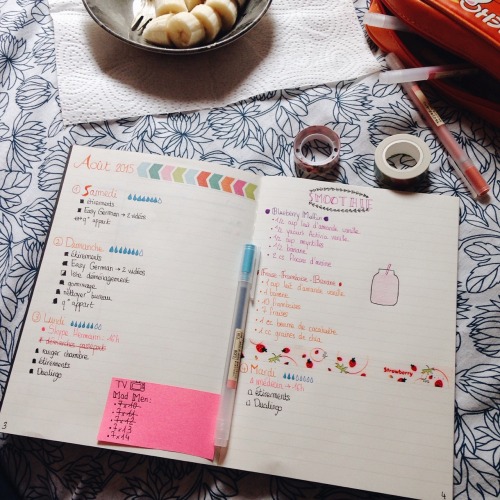 Août 2015
① Samedi
étirements
Easy German → 2 vidéos
appart
② Dimanche
étirements
Easy German → 2 vidéos
liste déménagement
gommage
nettoyer bureau
appart
③ Lundi
Skype Hermann : 16h
ranger chambre
étirements
Duolingo
TV
Mad Men :
7x10
7x11
7x12
7x13
7x14
3
SMOOTHIE
Blueberry Muffin
1/2 cup lait d'amande vanille
1/2 yaourt Activia vanille
1/2 cup myrtilles
1/2 banane
2 cc flocons d'avoine
Fraise - Framboise - Banane
1 cup lait d'amande vanille
1 banane
10 framboises
7 fraises
1 cc graines de chia
Strawberry
④ Mardi
médecin → 16h
étirements
Duolingo
4